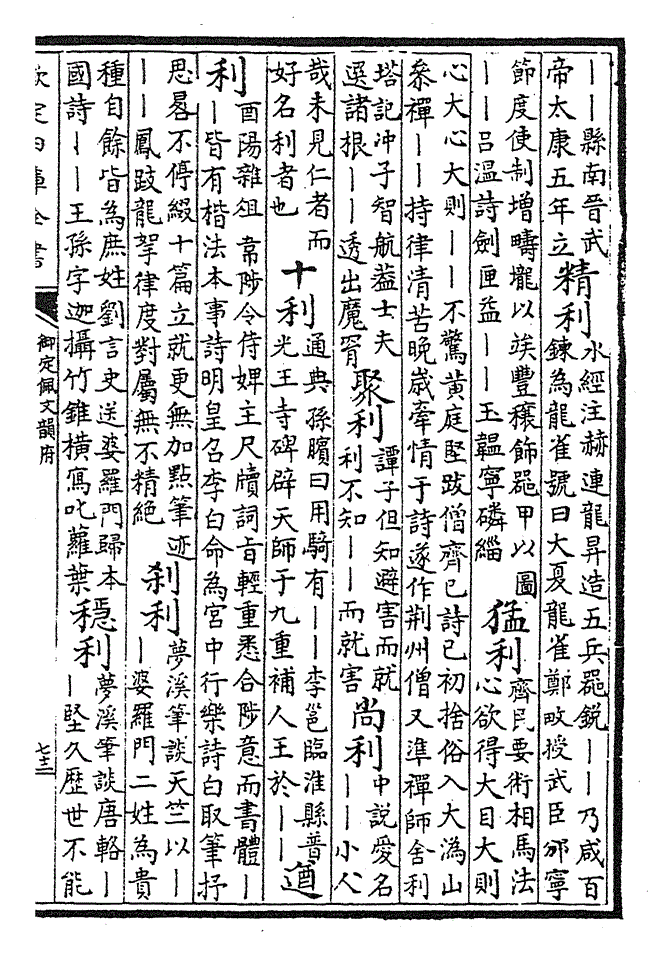 ——縣南晉武
帝太康五年立
精利
水經注赫連龍昇造五兵器銳——乃咸百
鍊為龍雀號曰大夏龍雀鄭畋授武臣邠寧
節度使制增疇壠以竢豐穰飾器甲以圖
——呂溫詩劍匣益——玉韞寧磷緇
猛利
齊民要術相馬法
心欲得大目大則
心大心大則——不驚黄庭堅跋僧齊已詩已初捨俗入大溈山
叅禪——持律清苦晚嵗牽情于詩遂作荆州僧又準禪師舍利
塔記冲子智航葢士夫
選諸根——透出魔罥
聚利
譚子但知避害而就
利不知——而就害
尚利
中說愛名
——小人
哉未見仁者而
好名利者也
十利
通典孫臏曰用騎有——李邕臨淮縣普
光王寺碑辟天師于九重補人王於——
遒
利
酉陽雜俎韋陟令侍婢主尺牘詞旨輕重悉合陟意而書體—
—皆有楷法本事詩明皇召李白命為宮中行樂詩白取筆抒
思晷不停綴十篇立就更無加點筆迹
——鳳跂龍拏律度對屬無不精絶
刹利
夢溪筆談天竺以—
—婆羅門二姓為貴
種自餘皆為庶姓劉言史送婆羅門歸本
國詩——王孫字迦攝竹錐橫寫叱蘿葉
穩利
夢溪筆談唐輅—
—堅久歷世不能
欽定四庫全書
御定佩文韻府
七三